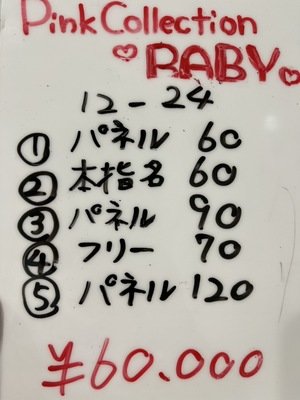 Pink Collection
♡RABY♡
12-24
① パネル 60
② 本指名 60
③ パネル 90
④ フリー 70
⑤ パネル 120
¥60.000